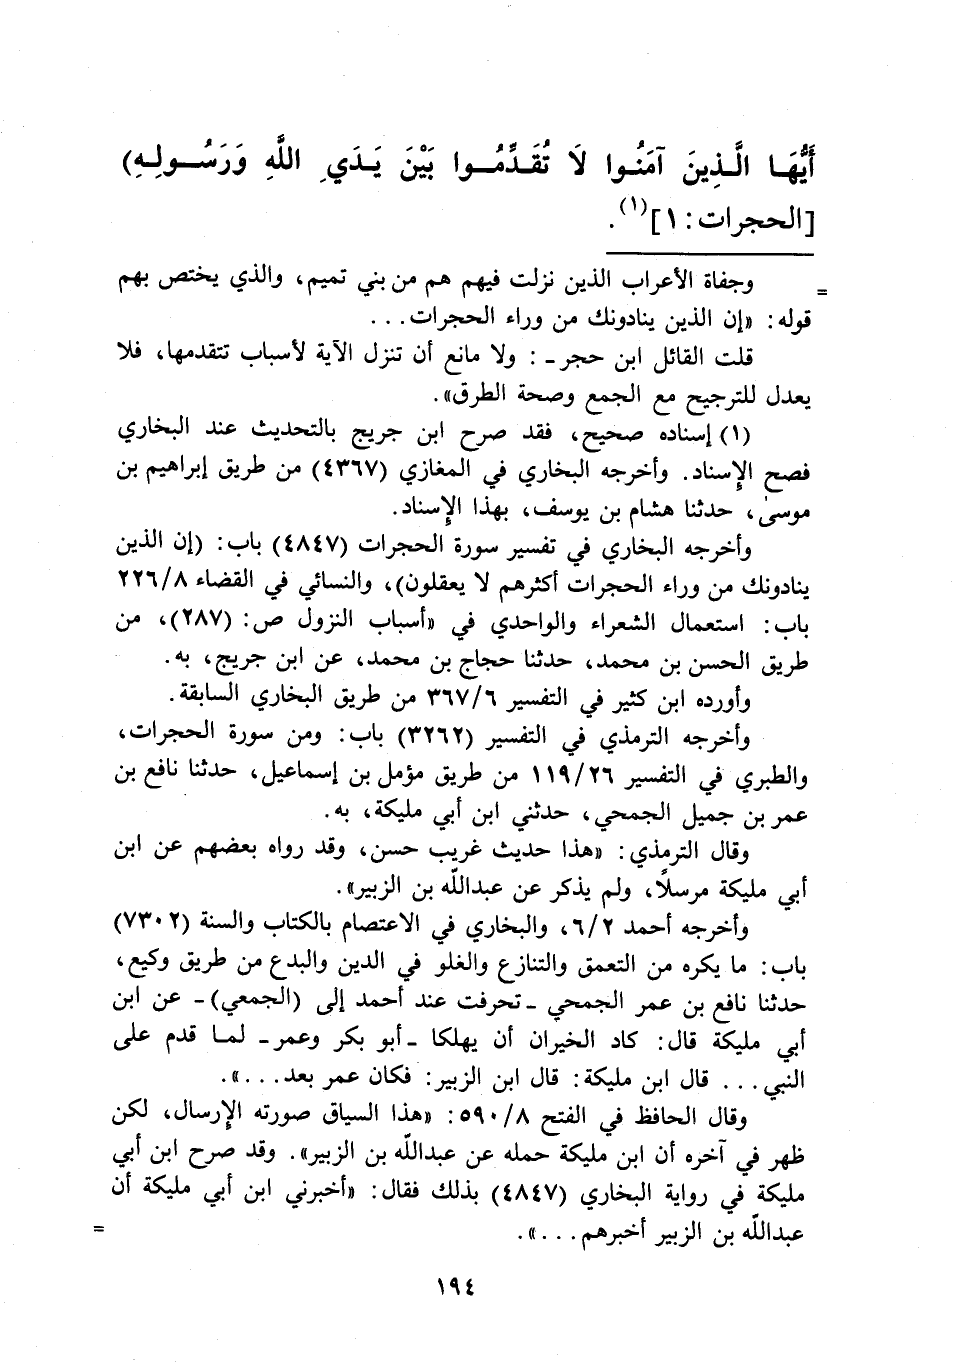 أَيُّهَا الَّذِينَ آمَنُوا لَا تُقَدِّمُوا بَيْنَ يَدَيِ اللَّهِ وَرَسُولِهِ)
[الحجرات: ١](١).
= وجفاة الأعراب الذين نزلت فيهم هم من بني تميم، والذي يختص بهم
قوله: «إن الذين ينادونك من وراء الحجرات...
قلت القائل ابن حجر -: ولا مانع أن تنزل الآية لأسباب تتقدمها، فلا
يعدل للترجيح مع الجمع وصحة الطرق».
(١) إسناده صحيح، فقد صرح ابن جريج بالتحديث عند البخاري
فصح الإسناد. وأخرجه البخاري في المغازي (٤٣٦٧) من طريق إبراهيم بن
موسىٰ، حدثنا هشام بن يوسف، بهذا الإسناد.
وأخرجه البخاري في تفسير سورة الحجرات (٤٨٤٧) باب: (إن الذين
ينادونك من وراء الحجرات أكثرهم لا يعقلون)، والنسائي في القضاء ٢٢٦/٨
باب: استعمال الشعراء والواحدي في «أسباب النزول ص: (٢٨٧)، من
طريق الحسن بن محمد، حدثنا حجاج بن محمد، عن ابن جريج، به.
وأورده ابن كثير في التفسير ٣٦٧/٦ من طريق البخاري السابقة.
وأخرجه الترمذي في التفسير (٣٢٦٢) باب: ومن سورة الحجرات،
والطبري في التفسير ١١٩/٢٦ من طريق مؤمل بن إسماعيل، حدثنا نافع بن
عمر بن جميل الجمحي، حدثني ابن أبي مليكة، به.
وقال الترمذي: «هذا حديث غريب حسن، وقد رواه بعضهم عن ابن
أبي مليكة مرسلاً، ولم يذكر عن عبدالله بن الزبير».
وأخرجه أحمد ٦/٢، والبخاري في الاعتصام بالكتاب والسنة (٧٣٠٢)
باب: ما يكره من التعمق والتنازع والغلو في الدين والبدع من طريق وكيع،
حدثنا نافع بن عمر الجمحي - تحرفت عند أحمد إلى (الجمعي) - عن ابن
أبي مليكة قال: كاد الخيران أن يهلكا - أبو بكر وعمر - لما قدم على
النبي... قال ابن مليكة: قال ابن الزبير: فكان عمر بعد...».
وقال الحافظ في الفتح ٥٩٠/٨: «هذا السياق صورته الإرسال، لكن
ظهر في آخره أن ابن مليكة حمله عن عبدالله بن الزبير». وقد صرح ابن أبي
مليكة في رواية البخاري (٤٨٤٧) بذلك فقال: «أخبرني ابن أبي مليكة أن
عبدالله بن الزبير أخبرهم...». =
١٩٤